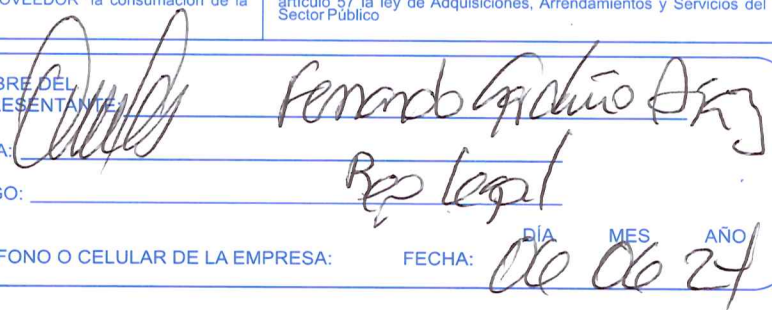 OVEEDOR" la consumación de la
artículo 57 la ley de Adquisiciones, Arrendamientos y Servicios del
Sector Público
BRE DEL
ESENTANTE: Fernando Garduño Díaz
A:
Rep Legal
GO:
DÍA MES AÑO
FONO O CELULAR DE LA EMPRESA: FECHA: 06 06 24